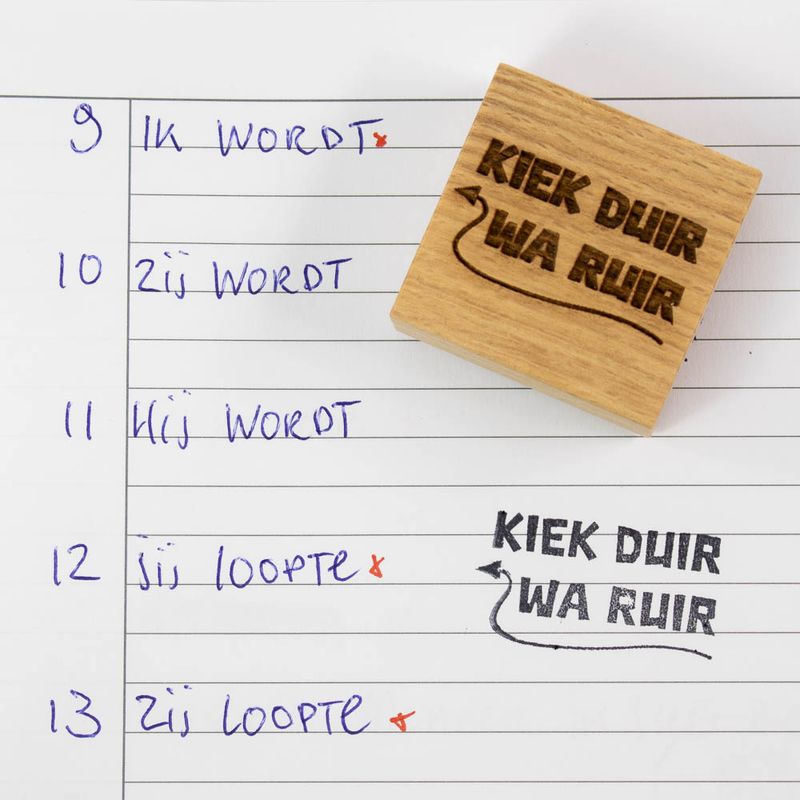 9 IK WORDT
10 Zij WORDT
11 Hij WORDT
12 jij LOOPTe
13 Zij LOOPTe
KIEK DUIR
WA RUIR
KIEK DUIR
WA RUIR